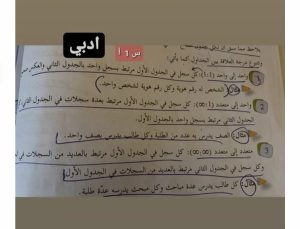 ادبي
س 1 أ
يلاحظ مما سبق أن
وتتنوع درجة العلاقة بين الجداول كما يأتي:
1 واحد إلى واحد (1:1): كل سجل في الجدول الأول مرتبط بسجل واحد بالجدول الثاني والعكس
مثال: الشخص له رقم هوية وكل رقم هوية لشخص واحد.
2 واحد إلى متعدد (1:∞): كل سجل في الجدول الأول مرتبط بعدة سجلات في الجدول الثاني
الجدول الثاني مرتبط بسجل واحد بالجدول الأول.
مثال: الصف يدرس به عدد من الطلبة وكل طالب يدرس بصف واحد.
3 متعدد إلى متعدد (∞:∞): كل سجل في الجدول الأول مرتبط بالعديد من السجلات في
وكل سجل في الجدول الثاني مرتبط بالعديد من السجلات في الجدول الأول.
مثال: كل طالب يدرس عدة مباحث وكل مبحث يدرسه عدة طلبة.